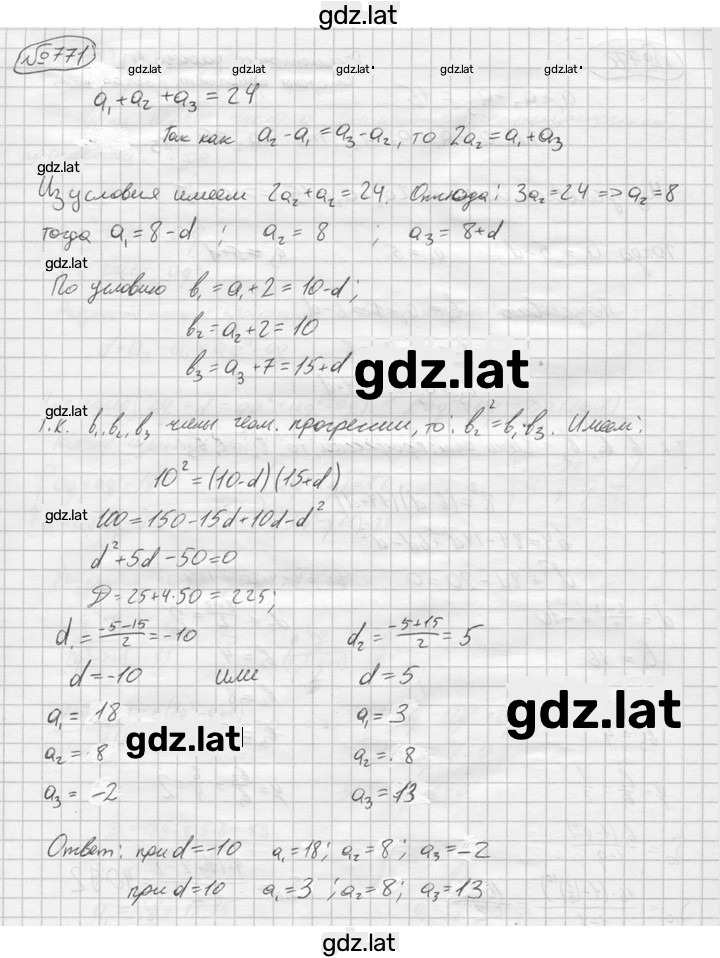 gdz.lat
№771
gdz.lat gdz.lat gdz.lat gdz.lat
a₁+a₂+a₃=24
Так как a₂-a₁=a₃-a₂, то 2a₂=a₁+a₃
gdz.lat
Из условия имеем 2a₂+a₂=24. Отсюда: 3a₂=24 =>a₂=8
тогда a₁=8-d ; a₂=8 ; a₃=8+d
gdz.lat
По условию b₁=a₁+2=10-d;
b₂=a₂+2=10
b₃=a₃+7=15+d
gdz.lat
gdz.lat
Т.к. b₁, b₂, b₃ члены геом. прогрессии, то: b₂²=b₁·b₃. Имеем:
10²=(10-d)(15+d)
gdz.lat
100=150-15d+10d-d²
d²+5d-50=0
D=25+4·50=225;
d₁=(-5-15)/2=-10 d₂=(-5+15)/2=5
d=-10 или d=5
a₁=18 a₁=3
gdz.lat
gdz.lat
a₂=8 a₂=8
a₃=-2 a₃=13
Ответ: при d=-10 a₁=18; a₂=8; a₃=-2
при d=10 a₁=3; a₂=8; a₃=13
gdz.lat